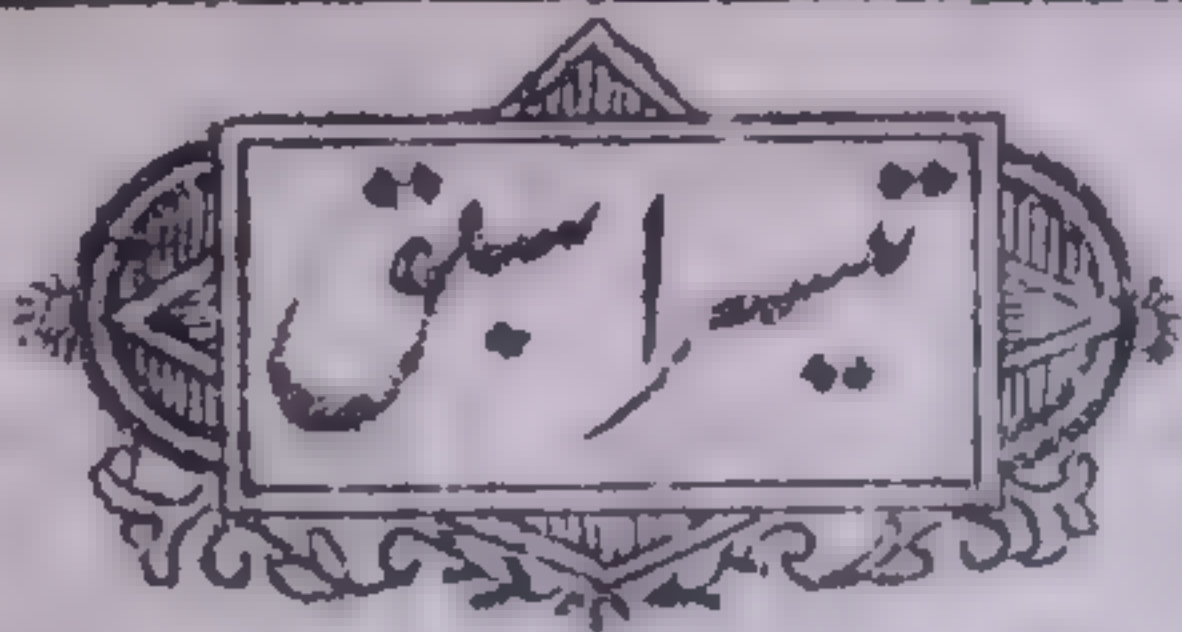 تیسرا سبق